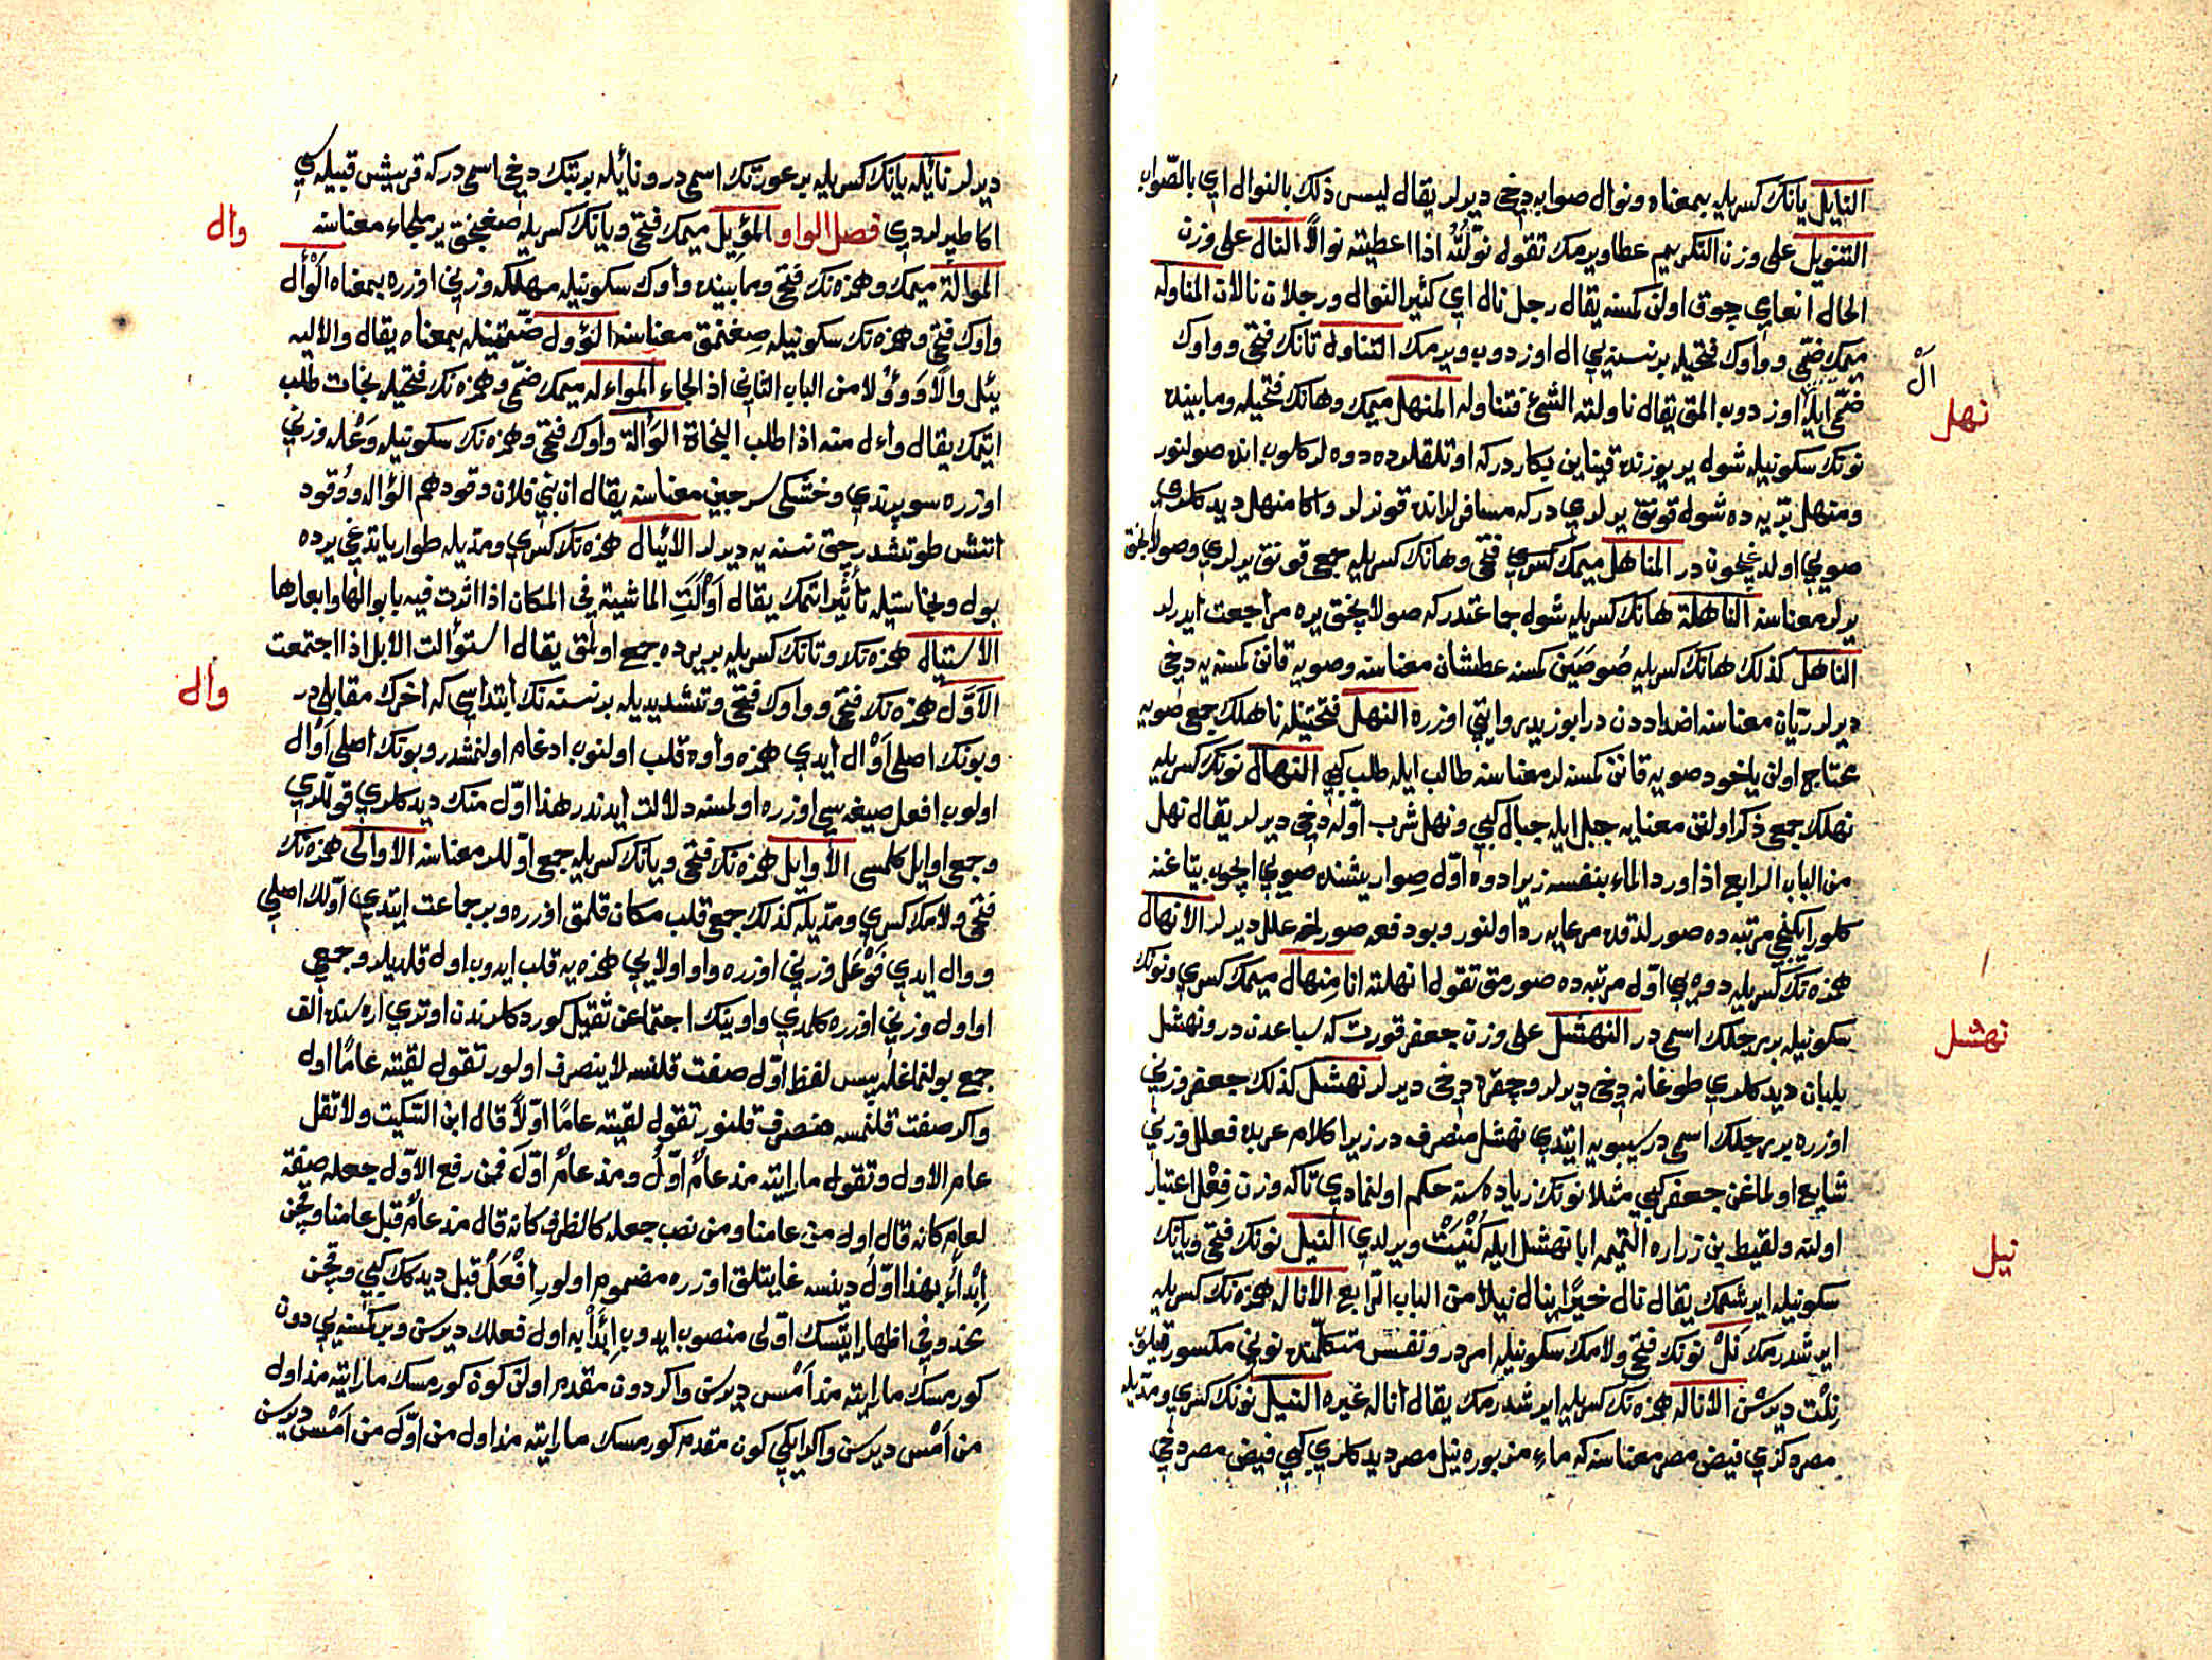 النايل يانك كسريله بمعناه ونوال صوابه دخي ديرلر يقال ليس ذلك بالنوال اي بالصّواب
التنويل على وزن التكريم عطا ويرمك تقول نوّلْتُه اذا اعطيته نوالًا النال على وزن
الحال انعامي چوق اولن كمسنه يقال رجل نال اي كثير النوال ورجلان نالان المناوله
ميمك ضمّي وواوك فتحيله بر نسنه يي ال اوزدوب ويرمك التناول تانك فتحي وواوك
ضمّي ايله اوزدوب المق يقال ناولته الشئ فتناوله المنهل ميمك وهانك فتحيله ومابينده
نونك سكونيله شول ير يوزنده قيناين بيكاردركه اوتلقلرده دوه لر كلوب انده صولنور
ومنهل برّيه ده شول قونق يرلري دركه مسافرلر انده قونرلر واكا منهل ديدكلري
صويي اولديغيچون در المناهل ميمك فتحي وهانك كسريله جمع قونق يرلري وصولانجق
يرلر معناسنه الناهلة هانك كسريله شول جماعتدركه صولانجق يره مراجعت ايدرلر
الناهل كذلك هانك كسريله صُوصَيَن كمسنه عطشان معناسنه وصويه قانن كمسنه يه دخي
ديرلر ريّان معناسنه اضداددن در ابوزيد روايتي اوزره النهل فتحتينله ناهلك جمعي صويه
محتاج اولن ياخود صويه قانن كمسنه لر معناسنه طالب ايله طلب كبي النهال نونك كسريله
نهلك جمعي ذكر اولنن معنايه جبل ايله جبال كبي ونهل شرب اوّله دخي ديرلر يقال نهل
من الباب الرابع اذا ورد الماء بنفسه زيرا دوه اوّل صوارينشنده صويي ايچوب يتاغنه
كلور ايكنجي مرتبه ده صورلدقده مرعايه رد اولنور وبو دفعه صورلنه علل ديرلر الانهال
همزه نك كسريله دوه يي اوّل مرتبه ده صورمق تقول انهلته انا مِنهال ميمك كسري ونونك
سكونيله بر رجلك اسمي در النهشل على وزن جعفر قورت كه سباعدن در ونهشل
يلبان ديدكلري طوغانه دخي ديرلر وچقره دخي ديرلر نهشل كذلك جعفر وزني
اوزره بر رجلك اسمي در سيبويه ايتدي نهشل منصرف در زيرا كلام عربده فعلل وزني
شايع اولماغن جعفر كبي مثلا نونك زياده سنه حكم اولنمادي تاكه وزن فِعْل اعتبار
اولنه ولقيط بن زراره التميمه ابا نهشل ايله كُنْيَتْ ويرلدي النيل نونك فتحي ويانك
سكونيله ايرشمك يقال نال خيرًا ينال نيلا من الباب الرّابع الانال همزه نك كسريله
ايرشدرمك نَلْ نونك فتحي ولامك سكونيله امردر ونفس متكلّمنده نوني مكسور قيلوب
نِلْت ديرسن الاناله همزه نك كسريله ايرشدرمك يقال اناله غيره النيل نونك كسري ومدّيله
مصردكزي فيض مصر معناسنه كه ماء مزبوره نيل مصر ديدكلري كبي فيض مصر دخي
اَلْ
نهل
نهشل
نيل
ديرلر نائله يانك كسريله بر عورتك اسمي در ونائله بر بتك دخي اسمي دركه قريش قبيله سي
اكا طپرلردي فصل الواو المَوْئِل ميمك فتحي ويانك كسريله صغنجق ير ملجاء معناسنه
الموالة ميمك وهمزه نك فتحي ومابينده واوك سكونيله مهلكه وزني اوزره بمعناه الْوَأْل
واوك فتحي وهمزه نك سكونيله صِغنمق معناسنه الوُؤول ضمّتينله بمعناه يقال وال اليه
يئل وألًا وَوُؤُلا من الباب الثاني اذا لجاء المواءله ميمك ضمّي وهمزه نك فتحيله نجات طلب
ايتمك يقال واءل منه اذا طلب النجاة الوَألة واوك فتحي وهمزه نك سكونيله وَعْله وزني
اوزره سوپرندي وخشكي سرجين معناسنه يقال ان بني فلان وقودهم الوَاله ووُقود
اتش طوتشدرجق نسنه يه ديرلر الائيال همزه نك كسري ومدّيله طوار ياتدغي يرده
بول ونجاستيله تأثير ايتمك يقال اَوْأَلَتِ الماشية في المكان اذا اثرت فيه بابوالها وابعارها
الاستيال همزه نك وتانك كسريله بر يرده جمع اولمق يقال استوألت الابل اذا اجتمعت
الأوَّل همزه نك فتحي وواوك فتحي وتشديديله بر نسنه نك ابتداسي كه اخرك مقابلي در
وبونك اصلي اَوْأل ايدي همزه واوه قلب اولنوب ادغام اولنمشدر وبونك اصلي اَوْأل
اولوب افعل صيغه سي اوزره اولمسنه دلالت ايدندر هذا اوّل منك ديدكلري قوللري
وجمعي اوايل كلمسي الأوايل همزه نك فتحي ويانك كسريله جمع اوّللر معناسنه الاوالى همزه نك
فتحي ولامك كسري ومدّيله كذلك جمع قلب مكان قلمق اوزره وبر جماعت ايتدي اوّلك اصلي
ووال ايدي فَوْعَل وزني اوزره واو اولايي همزه يه قلب ايدوب اول قلديلر وجمعي
اواول وزني اوزره كلمدي واوينك اجتماعن ثقيل كوردكلرندن اوتري اره سنده الف
جمع بولنماغله پس لفظ اوّل صفت قلنسه لاينصرف اولور تقول لقيته عامًا اول
واكر صفت قلنمسه منصرف قلنور تقول لقيته عامًا اوّلًا قال ابن السّكيت ولا تقل
عام الاول وتقول ما رايته مذ عامٌ اوّلُ ومذ عامٌ اوّلَ فمن رفع الاوّل جعله صفة
لعام كانه قال أول من عامنا ومن نصب جعله كالظرف كانه قال مذ عام قبل عامنا وقچن
اِبْدأ بهذا اوّلُ دينسه غايتلق اوزره مضموم اولور اِفْعَلْ قبل ديدكك كبي وقچن
محذوفي اظهار ايتسك اوّلى منصوب ايدوب اِبْدَأْ به اول فعلك ديرسن وبر كمسنه يي دون
كورمسك ما رايته مذ اَمْس ديرسن واكر دون مقدم اولن كون كورمسك ما رايته مذ اول
من اَمْس ديرسن واكر ايكي كون مقدم كورمسك ما رايته مذ اول من اوّل من اَمْس ديرسن
وال
وال